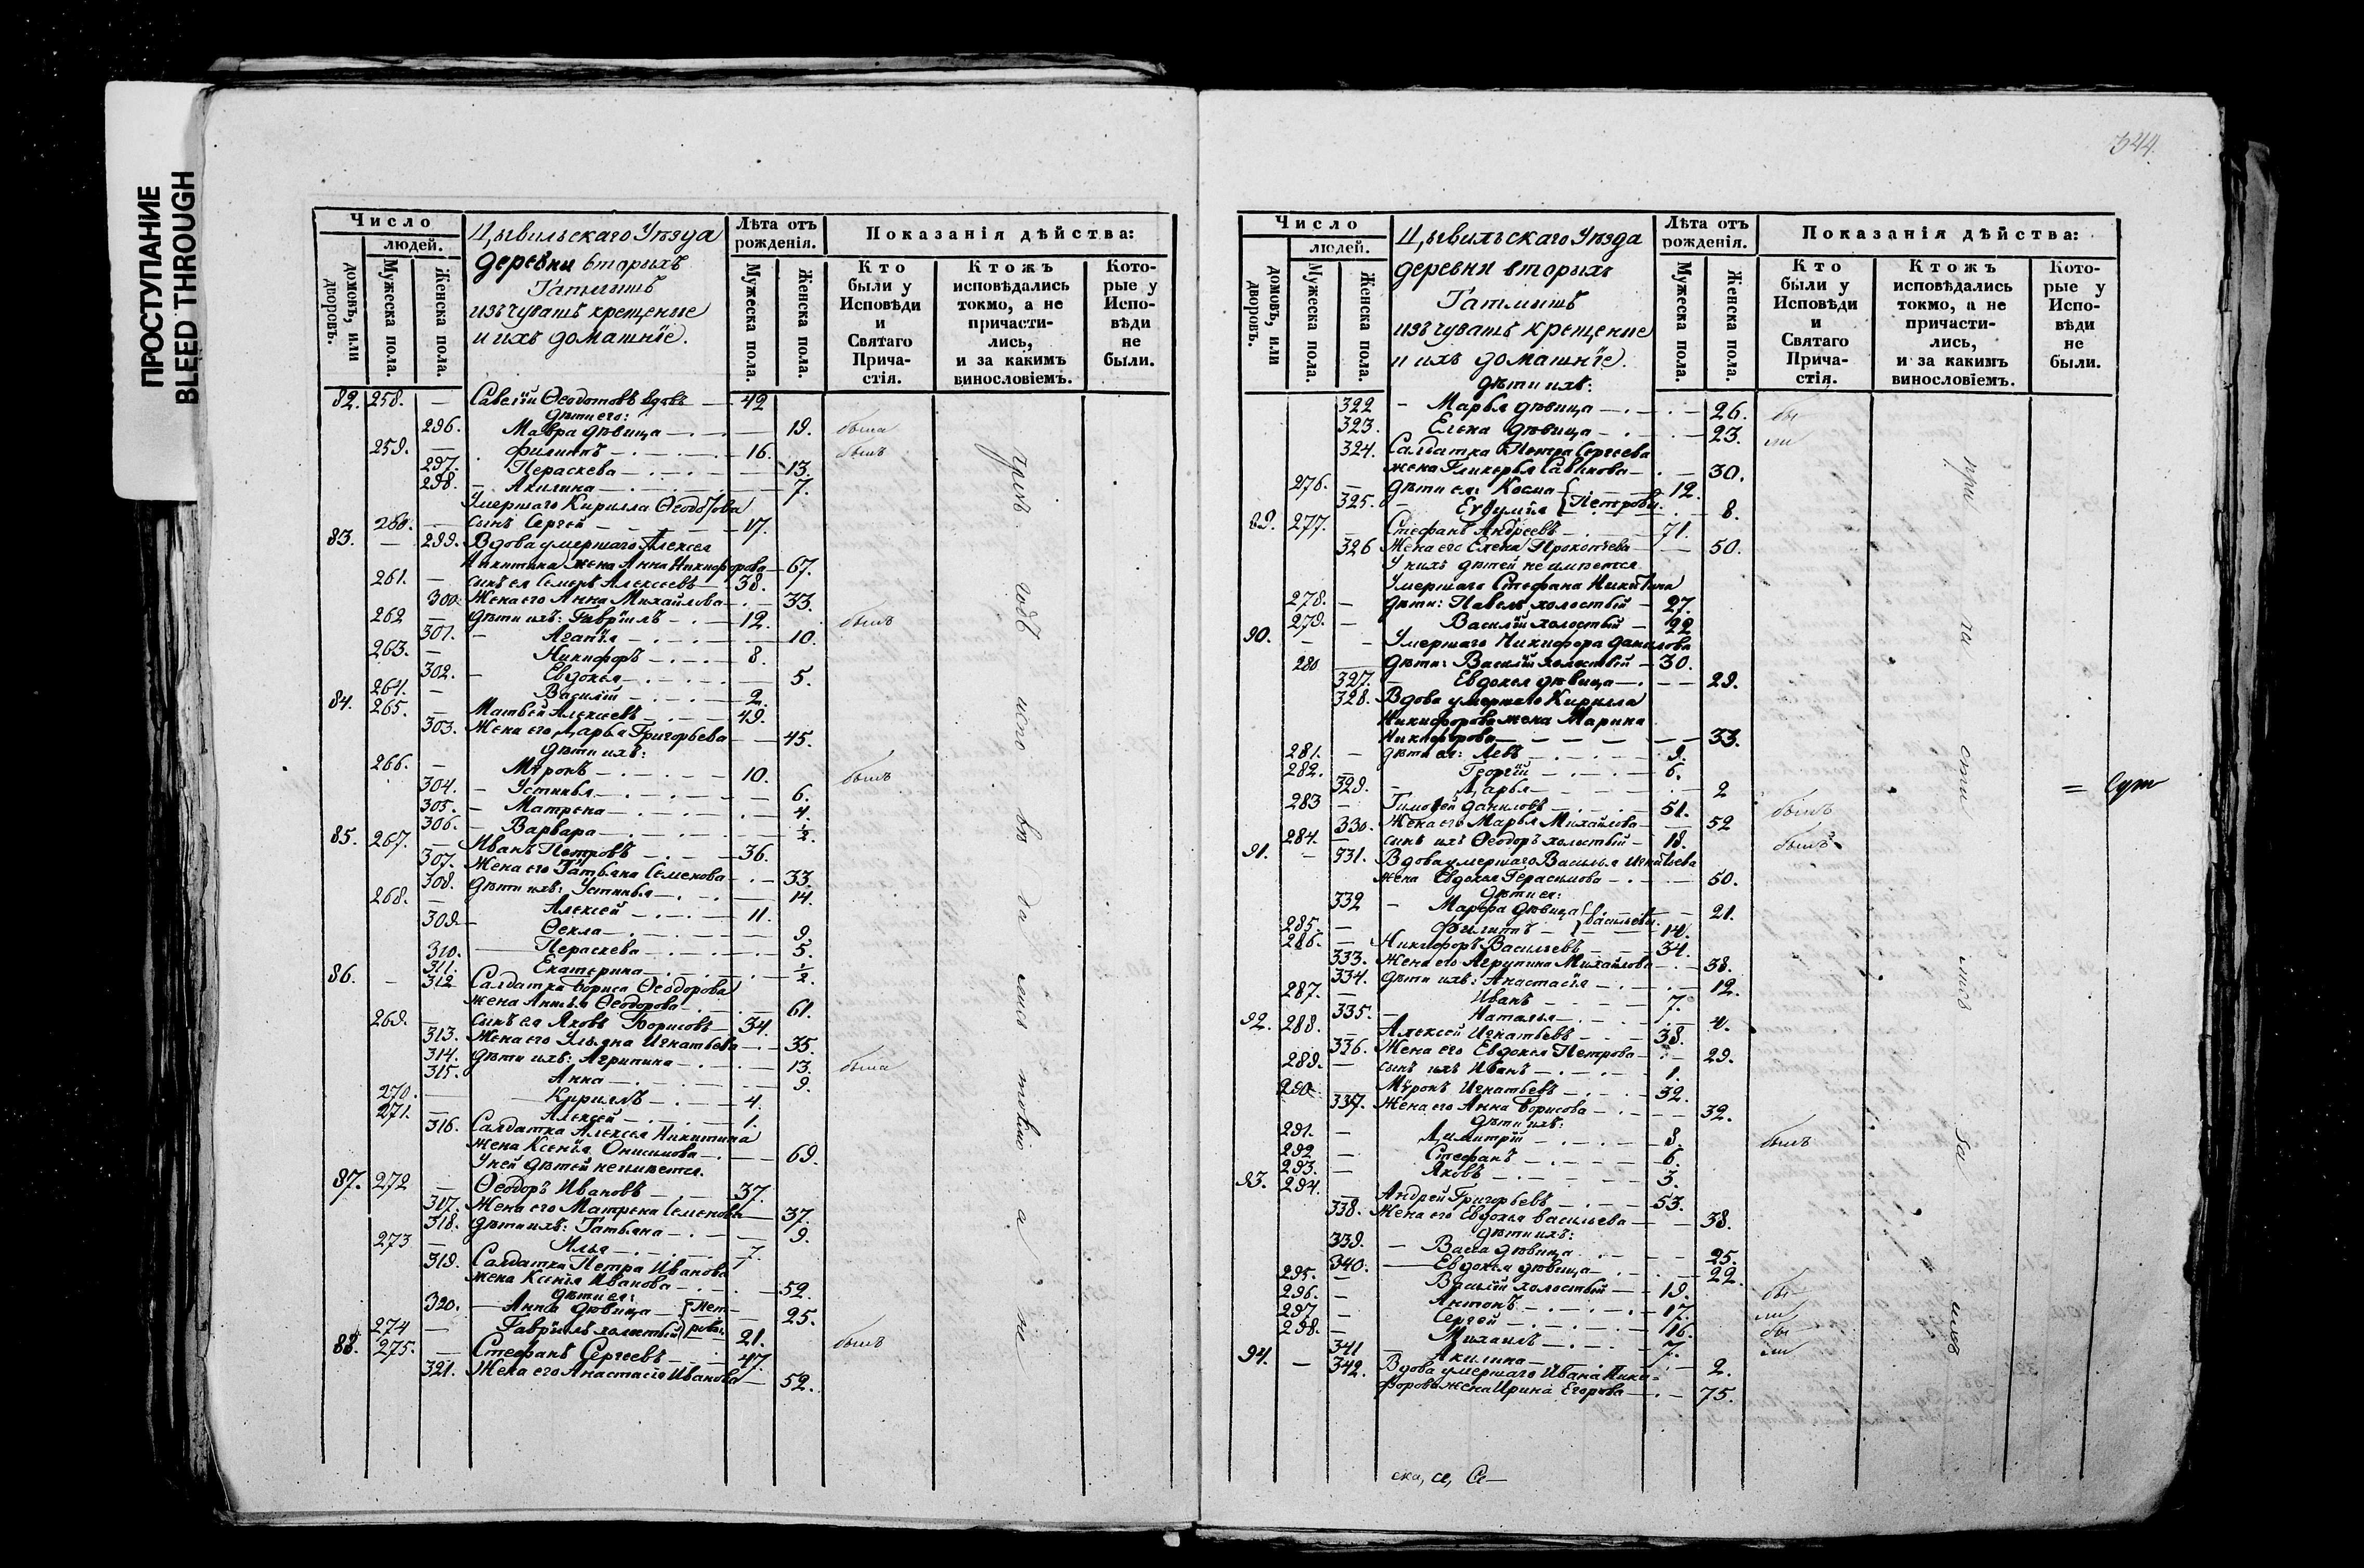 ПРОСТУПАНИЕ
BLEED THROUGH
Число
людей.
домовъ, или дворовъ.
Мужеска пола.
Женска пола.
Цывильскаго Уѣзда
деревни вторыхъ
Татмышъ
изъ чувашъ крещеные
и ихъ домашніе.
Лѣта отъ рожденія.
Мужеска пола.
Женска пола.
Показанія дѣйства:
Кто были у Исповѣди и Святаго Прича-стія.
Ктожъ исповѣдались токмо, а не причасти-лись, и за какимъ винословіемъ.
Кото-рые у Испо-вѣди не были.
82. 258. — Савелій Ѳеодотовъ вдовъ — 42
дѣти его:
296. Мавра дѣвица — 19. была
259. — Филиппъ — 16. былъ
297. Пераскева — 13.
298. — Акилина — 7.
Умершаго Кирилла Ѳеодотова
260. — сынъ Сергей — 17.
83. — 299. Вдова умершаго Алексея
Никитина жена Анна Никифорова — 67.
261. — сынъ ея Семенъ Алексеевъ — 38.
300. Жена его Анна Михайлова — 33.
262 — дѣти ихъ: Гавріилъ — 12. былъ
301. — Агапія — 10.
263. — Никифоръ — 8.
302. — Евдокея — 5.
264. — Василій — 2.
84. 265. — Матвей Алексеевъ — 49.
303. Жена его Дарья Григорьева — 45.
дѣти ихъ:
266. — Мѵронъ — 10. былъ
304. — Устинья — 6.
305. — Матрена — 4.
306. — Варвара — ½.
85. 267. — Иванъ Петровъ — 36.
307. Жена его Татьяна Семенова — 33.
308. дѣти ихъ: Устинья — 14.
268. — Алексей — 11.
309 — Ѳекла — 9.
310. — Пераскева — 5.
311. Екатерина — ½.
86. — 312 Салдатка Бориса Ѳеодорова
жена Анисья Ѳеодорова — 61.
269. — сынъ ея Яковъ Борисовъ — 34.
313. Жена его Ульяна Игнатьева — 35.
314. дѣти ихъ: Агрипина — 13. была
315. Анна — 9.
270. — Кириллъ — 4.
271. — Алексей — 1.
316. Салдатка Алексея Никитина
жена Ксенія Онисимова — 69.
У ней дѣтей не имѣется.
87. 272 — Ѳеодоръ Ивановъ — 37.
317. Жена его Матрена Семенова — 37.
318. дѣти ихъ: Татьяна — 9.
273 — Илья — 7.
319. Салдатка Петра Иванова
жена Ксенія Иванова — 52.
дѣти ея:
320. — Анна дѣвица — {Пет- 25.
274 — Гавріилъ холостый} ровы 21. былъ
88. 275. — Стефанъ Сергеевъ — 47.
321. Жена его Анастасія Иванова — 52.
344.
Число
людей.
домовъ, или дворовъ.
Мужеска пола.
Женска пола.
Цывильскаго Уѣзда
деревни вторыхъ
Татмышъ
изъ чувашъ крещеные
и ихъ домашніе.
Лѣта отъ рожденія.
Мужеска пола.
Женска пола.
Показанія дѣйства:
Кто были у Исповѣди и Святаго Прича-стія.
Ктожъ исповѣдались токмо, а не причасти-лись, и за какимъ винословіемъ.
Кото-рые у Испо-вѣди не были.
дѣти ихъ:
322 — Марья дѣвица — 26. бы
323. Елена дѣвица — 23. ли
324. Салдатка Петра Сергеева
жена Гликерья Савинова — 30.
276. — дѣти ея: Косма { 12.
325. — Евфимія { Петровы. 8.
89. 277. — Стефанъ Андреевъ — 71.
326 Жена его Елена Прокопьева — 50.
У нихъ дѣтей не имѣется
Умершаго Стефана Никитина
278. — дѣти: Павелъ холостый — 27.
279. — Василій холостый — 22
90. — Умершаго Никифора Данилова
280 — дѣти: Василій холостый — 30.
327. — Евдокея дѣвица — 29.
328. Вдова умершаго Кирилла
Никифорова жена Марина
Никифорова — 33.
281. — дѣти ея: Левъ — 9.
282. — Георгій — 6.
329. — Дарья — 2
283 — Тимофей Даниловъ — 51. былъ
330. Жена его Марья Михайлова — 52
284. — сынъ ихъ Ѳеодоръ холостый — 19. былъ
91. — 331. Вдова умершаго Василья Игнатьева
жена Евдокея Герасимова — 50.
дѣти ея:
332 — Марфа дѣвица { Васильевы 21.
285. — Филиппъ — 14.
286. — Никифоръ Васильевъ — 34.
333. Жена его Агрупина Михайлова — 38.
334. дѣти ихъ: Анастасія — 12.
287. — Иванъ — 7.
335. — Наталья — 4.
92. 288. Алексей Игнатьевъ — 38.
336. Жена его Евдокея Петрова — 29.
289. — сынъ ихъ Иванъ — 1.
290 Мѵронъ Игнатьевъ — 32.
337. Жена его Анна Борисова — 32.
дѣти ихъ:
291. — Димитрій — 8. былъ
292 — Стефанъ — 6.
293. — Яковъ — 3.
93. 294. Андрей Григорьевъ — 53.
338. Жена его Евдокея Васильева — 38.
дѣти ихъ:
339. — Васса дѣвица — 25.
340. — Евдокея дѣвица — 22.
295. — Василій холостый — 19. бы
296. — Антонъ — 17. ли
297 — Сергей — 16. бы
298. — Михаилъ — 7. ли
341 Акилина — 2.
94. — 342. Вдова умершаго Ивана Ники-
форова жена Ирина Егорова — 75.